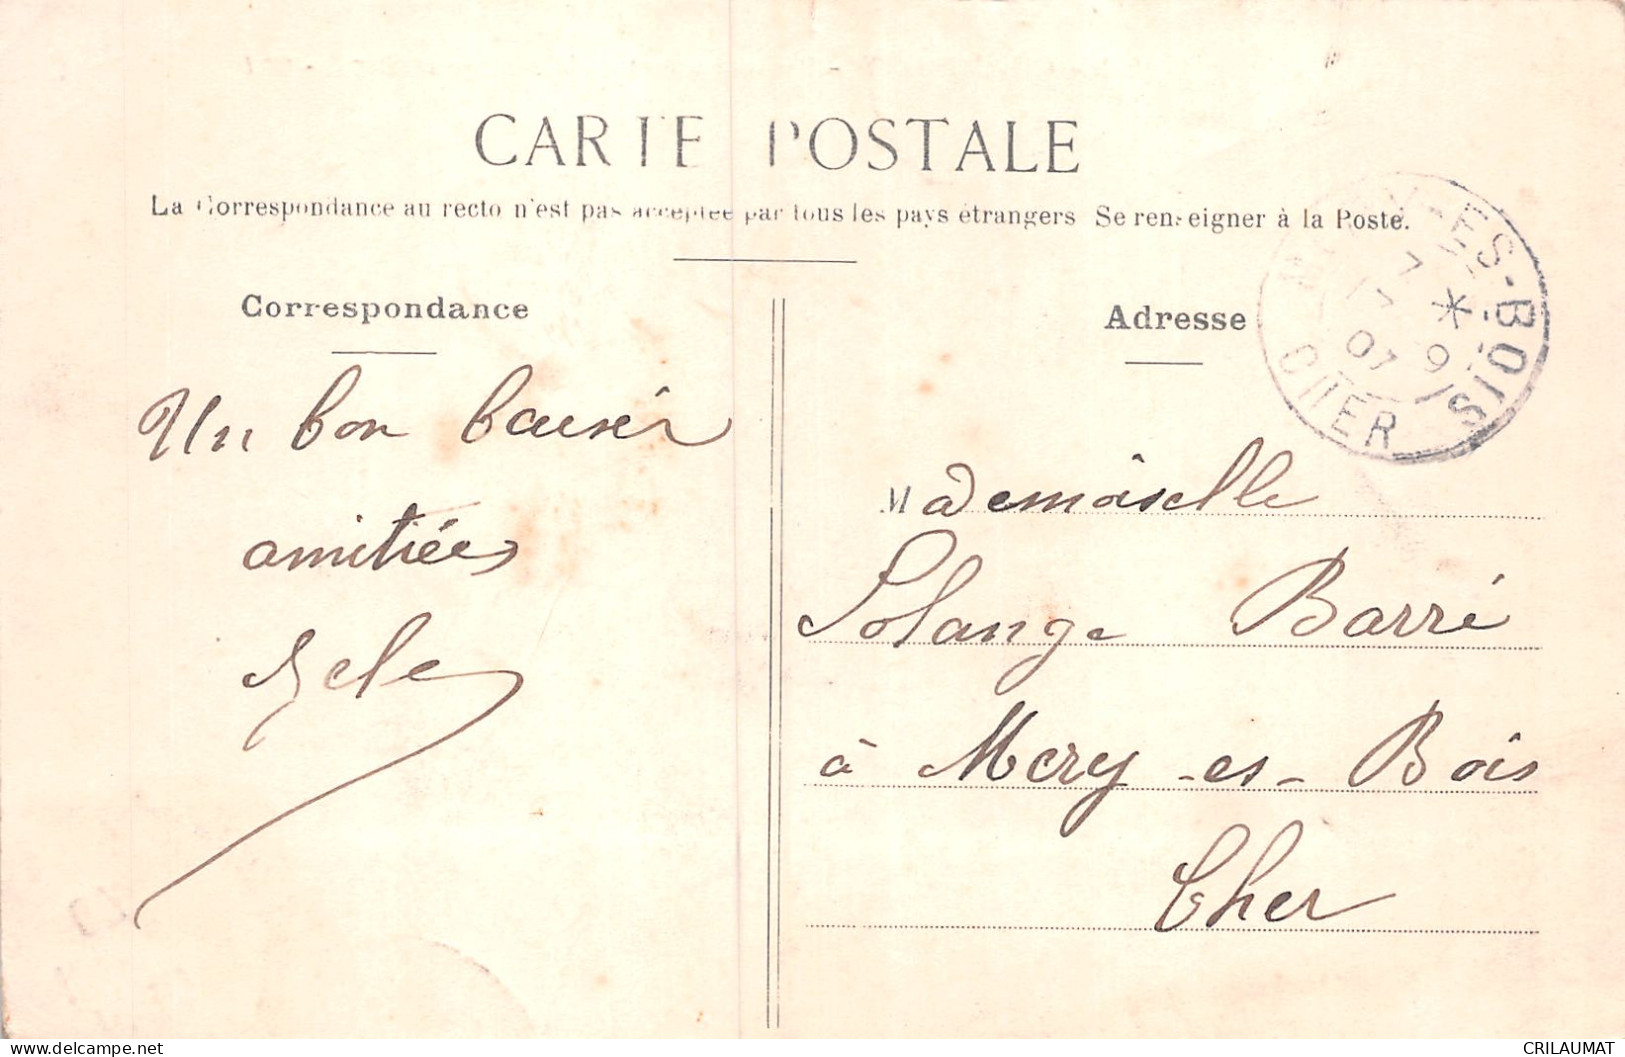 CARTE POSTALE
La Correspondance au recto n'est pas acceptée par tous les pays étrangers Se renseigner à la Poste.
Correspondance
Un bon baiser
amitiées
Adresse
Mademoiselle
Solange Barré
à Mery-es-Bois
Cher
ES-BOIS
CHER
07
delcampe.net
CRILAUMAT